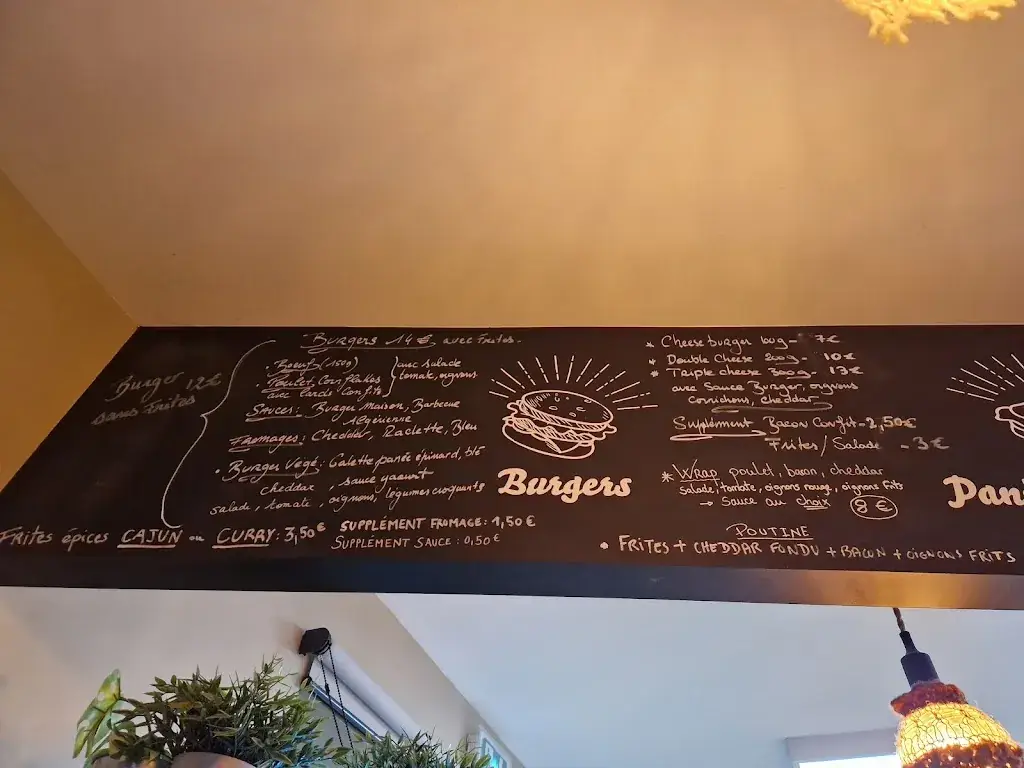 Burger 12€
sans Frites
Burgers 14€ avec Frites.
. Boeuf (150g)
. Poulet Corn flakes
avec lards confits
avec salade
tomate, oignons
Sauces: Burger Maison, Barbecue
Algérienne
Fromages: Cheddar, Raclette, Bleu
. Burger Végé: Galette panée épinard, blé
cheddar, sauce yaourt
salade, tomate, oignons, légumes croquants
Frites épices CAJUN ou CURRY: 3,50€
SUPPLÉMENT FROMAGE: 1,50€
SUPPLÉMENT SAUCE: 0,50€
Burgers
* Cheese burger 100g - 7€
* Double Cheese 200g - 10€
* Triple cheese 300g - 13€
avec Sauce Burger, oignons
cornichons, cheddar
Supplément Bacon Confit - 2,50€
Frites/Salade - 3€
* Wrap poulet, bacon, cheddar
salade, tomate, oignons rouge, oignons frits
→ Sauce au choix 8€
POUTINE
• FRITES + CHEDDAR FONDU + BACON + OIGNONS FRITS